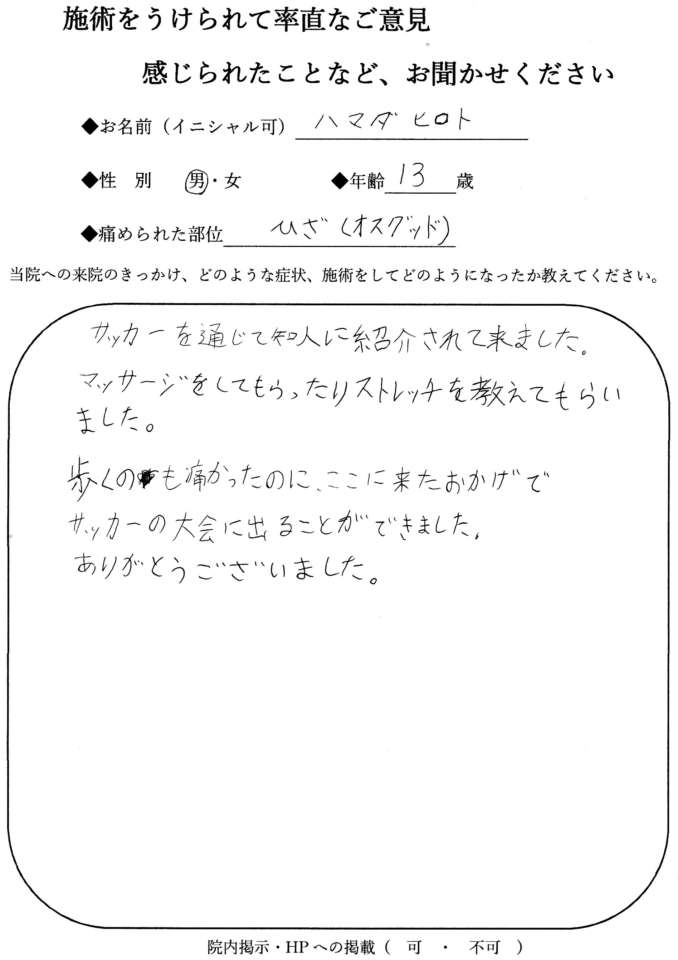 施術をうけられて率直なご意見
感じられたことなど、お聞かせください
◆お名前（イニシャル可） ハマダ ヒロト
◆性　別　男・女　◆年齢 13 歳
◆痛められた部位 ひざ（オスグッド）
当院への来院のきっかけ、どのような症状、施術をしてどのようになったか教えてください。
サッカーを通じて知人に紹介されて来ました。
マッサージをしてもらったりストレッチを教えてもらい
ました。
歩くのも痛かったのに、ここに来たおかげで
サッカーの大会に出ることができました。
ありがとうございました。
院内掲示・HPへの掲載（　可　・　不可　）